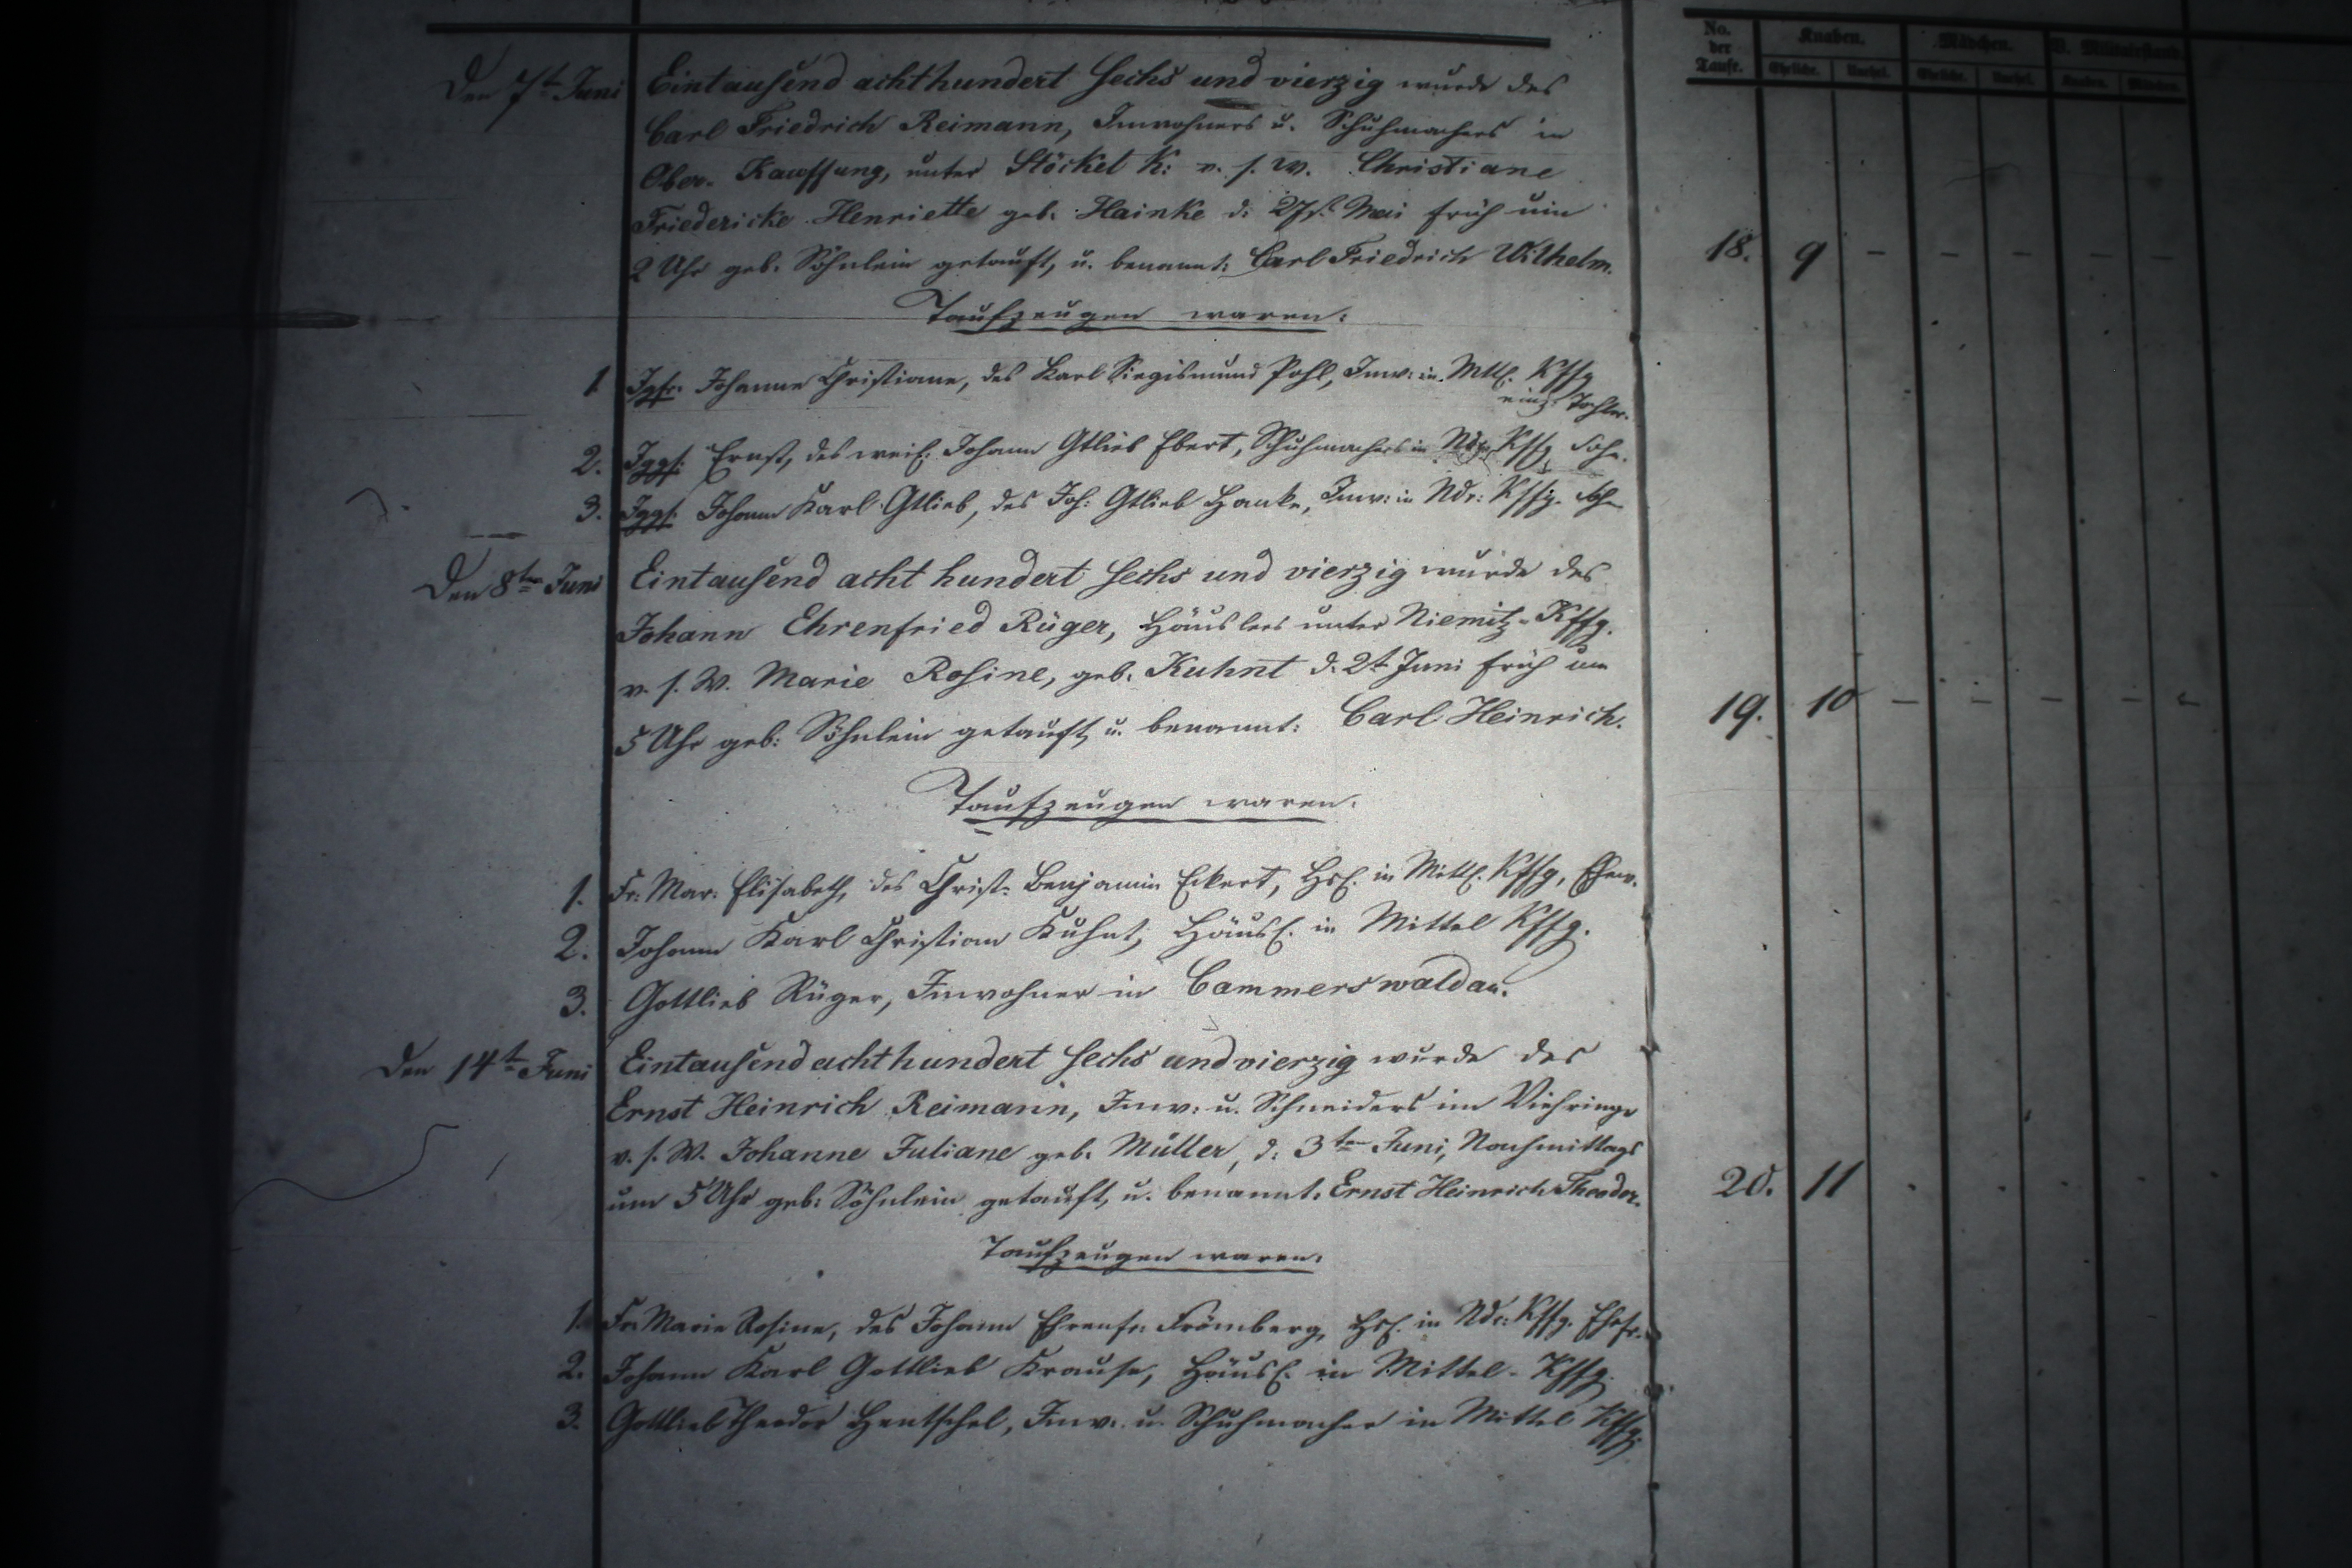 No. der Taufe. Knaben. Mädchen. V. Militairstand.
Eheliche. Unehel. Eheliche. Unehel. Knaben. Mädchen.
Den 7t Juni Eintausend achthundert sechs und vierzig wurde des
Carl Friedrich Reimann, Inwohners u. Schuhmachers in
Ober-Kauffung, unter Stöckel K: v. s. W. Christiane
Friedericke Henriette geb. Hainke d: 27st. Mai früh um
2 Uhr geb. Söhnlein getauft, u. benannt: Carl Friedrich Wilhelm. 18. 9 – – – – –
Taufzeugen waren:
1. Jgfr. Johanne Christiane, des Karl Siegismund Pohl, Inw: in Mttl. Kffg
einz. Tochter.
2. Jggs: Ernst, des weil. Johann Gtlieb Ebert, Schuhmachers in Ndr. Kffg. Sohn.
3. Jggs. Johann Karl Gtlieb, des Joh: Gtlieb Hanke, Inw: in Ndr: Kffg. Sohn
Den 8ten Juni Eintausend acht hundert sechs und vierzig wurde des
Johann Ehrenfried Rüger, Häuslers unter Niemitz-Kffg.
v. s. W. Marie Rosine, geb. Kuhnt d. 2t Juni früh um
5 Uhr geb: Söhnlein getauft, u. benannt: Carl Heinrich. 19. 10 – – – – –
Taufzeugen waren.
1. Fr: Mar: Elisabeth, des Christ: Benjamin Eckert, Hsl. in Mittl. Kffg, Ehew.
2. Johann Karl Christian Kuhnt, Häusl. in Mittel Kffg.
3. Gottlieb Rüger, Inwohner in Cammerswaldau.
Den 14t Juni Eintausend achthundert sechs und vierzig wurde des
Ernst Heinrich Reimann, Inw: u. Schneiders im Viehringe
v. s. W. Johanne Juliane geb. Müller, d: 3ten Juni, Nachmittags
um 5 Uhr geb: Söhnlein getauft, u. benannt. Ernst Heinrich Theodor. 20. 11
Taufzeugen waren.
1. Fr. Marie Rosine, des Johann Ehrenfr: Frömberg, Hsl. in Ndr: Kffg. Ehefr.
2. Johann Karl Gottlieb Krause, Häusl. in Mittel-Kffg.
3. Gottlieb Theodor Hentschel, Inw. u. Schuhmacher in Mittel Kffg.